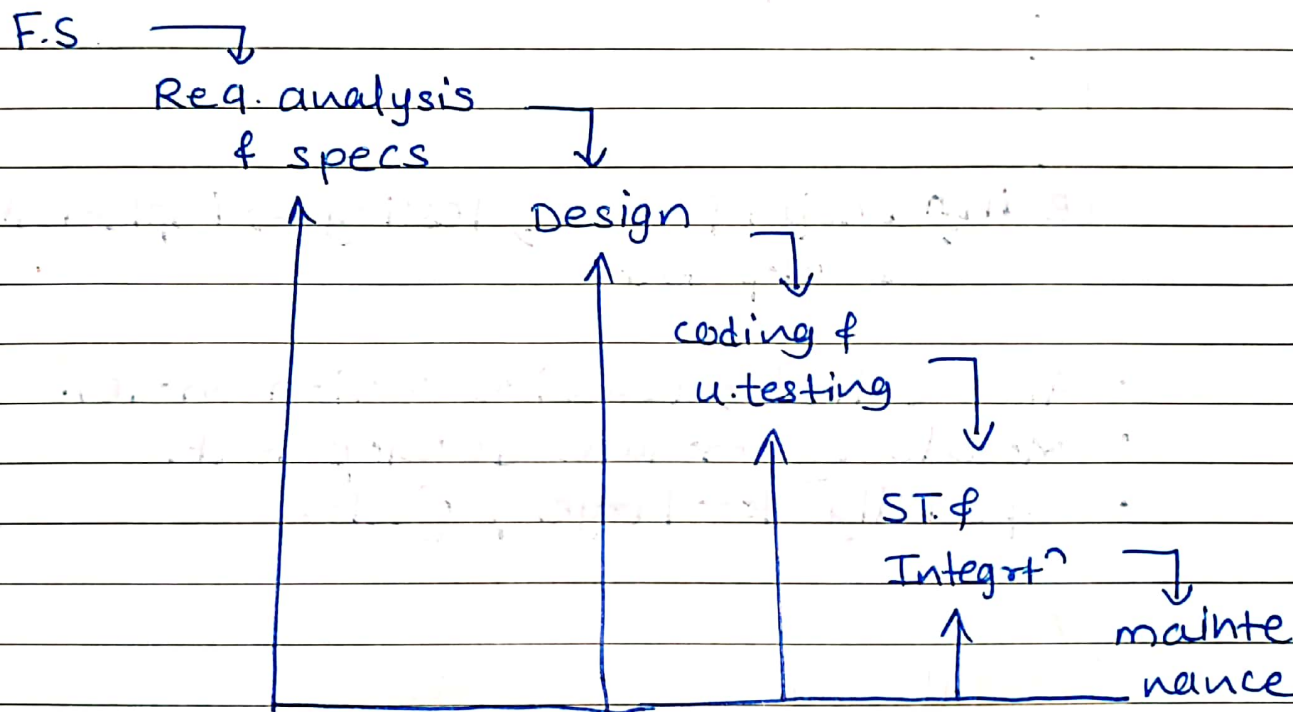 F.S
Req. analysis
& specs
Design
coding &
u.testing
ST. &
Integrtn
mainte
nance